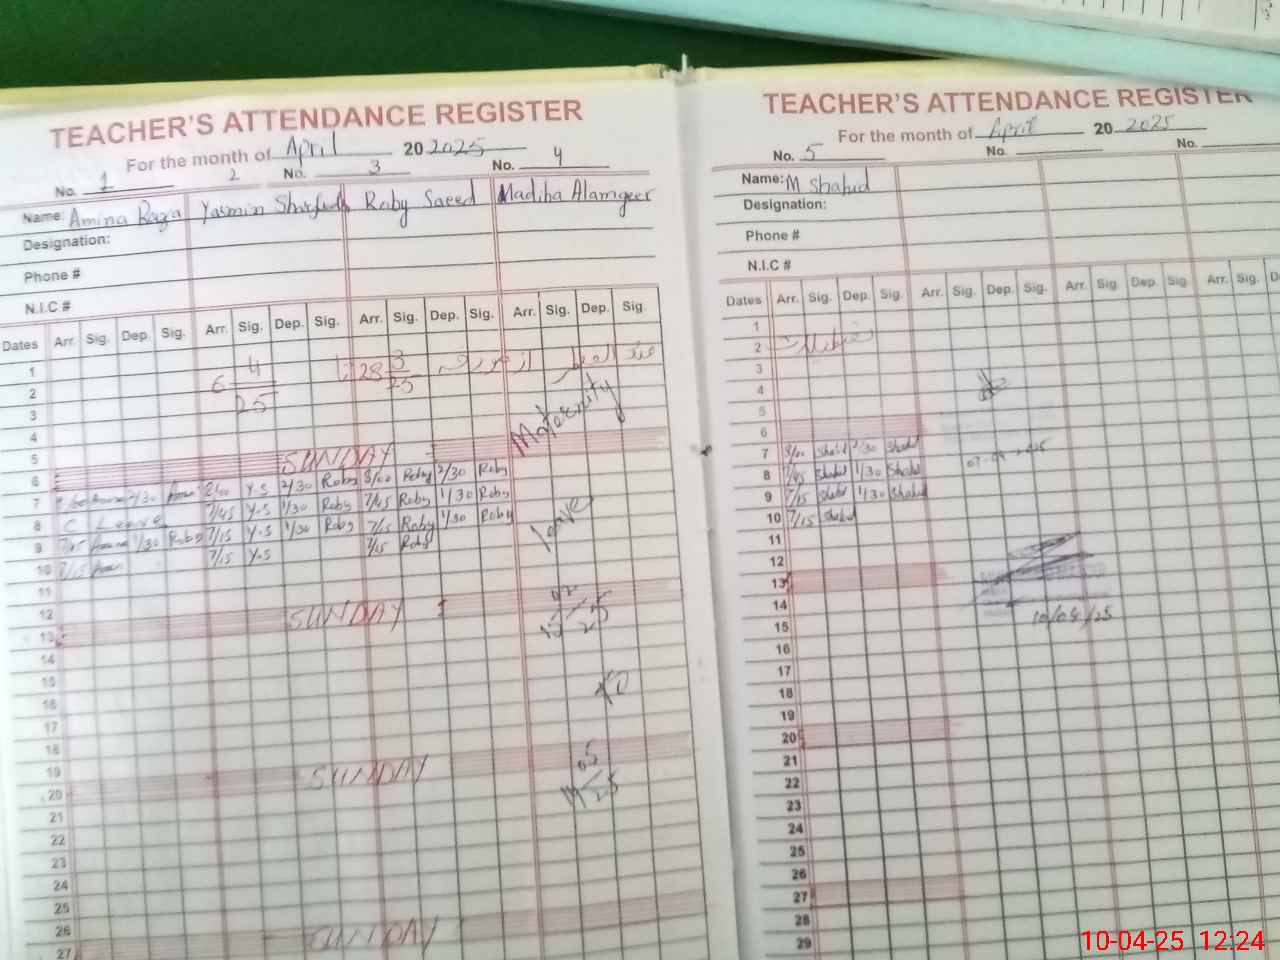 TEACHER'S ATTENDANCE REGISTER
For the month of April 20 2025
No. 1 2 No. 3 No. 4
Name: Amina Raza Yasmin Roby Saeed Madiha Alamgeer
Designation:
Phone #
N.I.C #
Dates Arr. Sig. Dep. Sig. Arr. Sig. Dep. Sig. Arr. Sig. Dep. Sig. Arr. Sig. Dep. Sig.
1
2 6 4/25 28 3/25
3
4 Maternity
5
6 SUNDAY
7 2/30 Y.S 2/30 Roby 8/00 Roby 2/30 Roby
8 C Leave 7/45 Y.S 1/30 Roby 7/45 Roby 1/30 Roby leave
9 7/45 1/30 Roby 7/15 Y.S 1/30 Roby 7/15 Roby 1/30 Roby
10 7/15 7/15 Y.S 7/15 Roby
11
12
13 SUNDAY
14
15
16
17
18
19
20 SUNDAY
21
22
23
24
25
26
27 SUNDAY
TEACHER'S ATTENDANCE REGISTER
For the month of April 20 2025
No. 5 No. No.
Name: M Shahid
Designation:
Phone #
N.I.C #
Dates Arr. Sig. Dep. Sig. Arr. Sig. Dep. Sig. Arr. Sig. Dep. Sig. Arr. Sig.
1
2 تعطیلات
3
4
5
6
7 8/00 Shahid 2/30 Shahid 07-04-2025
8 7/45 Shahid 1/30 Shahid
9 7/15 Shahid 1/30 Shahid
10 7/15 Shahid
11
12
13
14 10/04/25
15
16
17
18
19
20
21
22
23
24
25
26
27
28
29
10-04-25 12:24